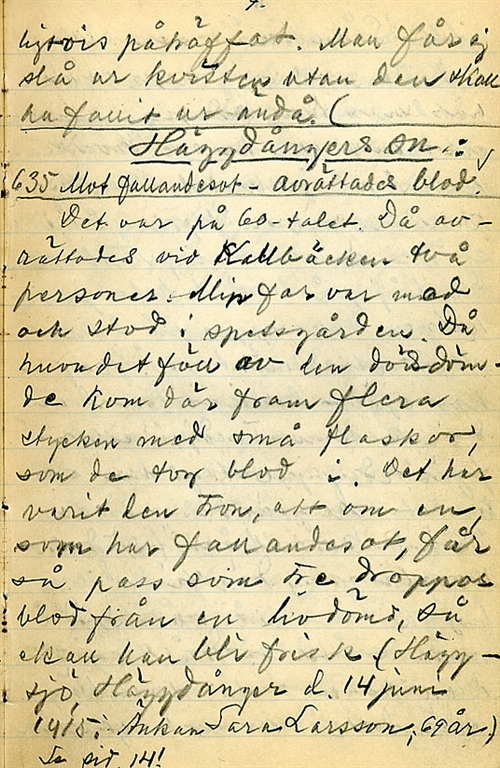 9.
ligtvis påträffat. Man får ej
slå ur kvisten utan den skall
ha fallit ur ändå. (
Häggdångers sn.:
635 Mot fallandesot - avrättades blod.
Det var på 60-talet. Då av-
rättades vid Kallbäcken två
personer. Min far var med
och stod i spetsgården. Då
huvudet föll av den dödsdöm-
de kom där fram flera
stycken med små flaskor,
som de tog blod i. Det har
varit den tron, att om en,
som har fallandesot, får
så pass som tre droppar
blod från en livdömd, så
skall han bli frisk. (Hägg-
sjö, Häggdånger d. 14 juni
1915; Änkan Sara Larsson, 69 år.)
Se sid. 14!